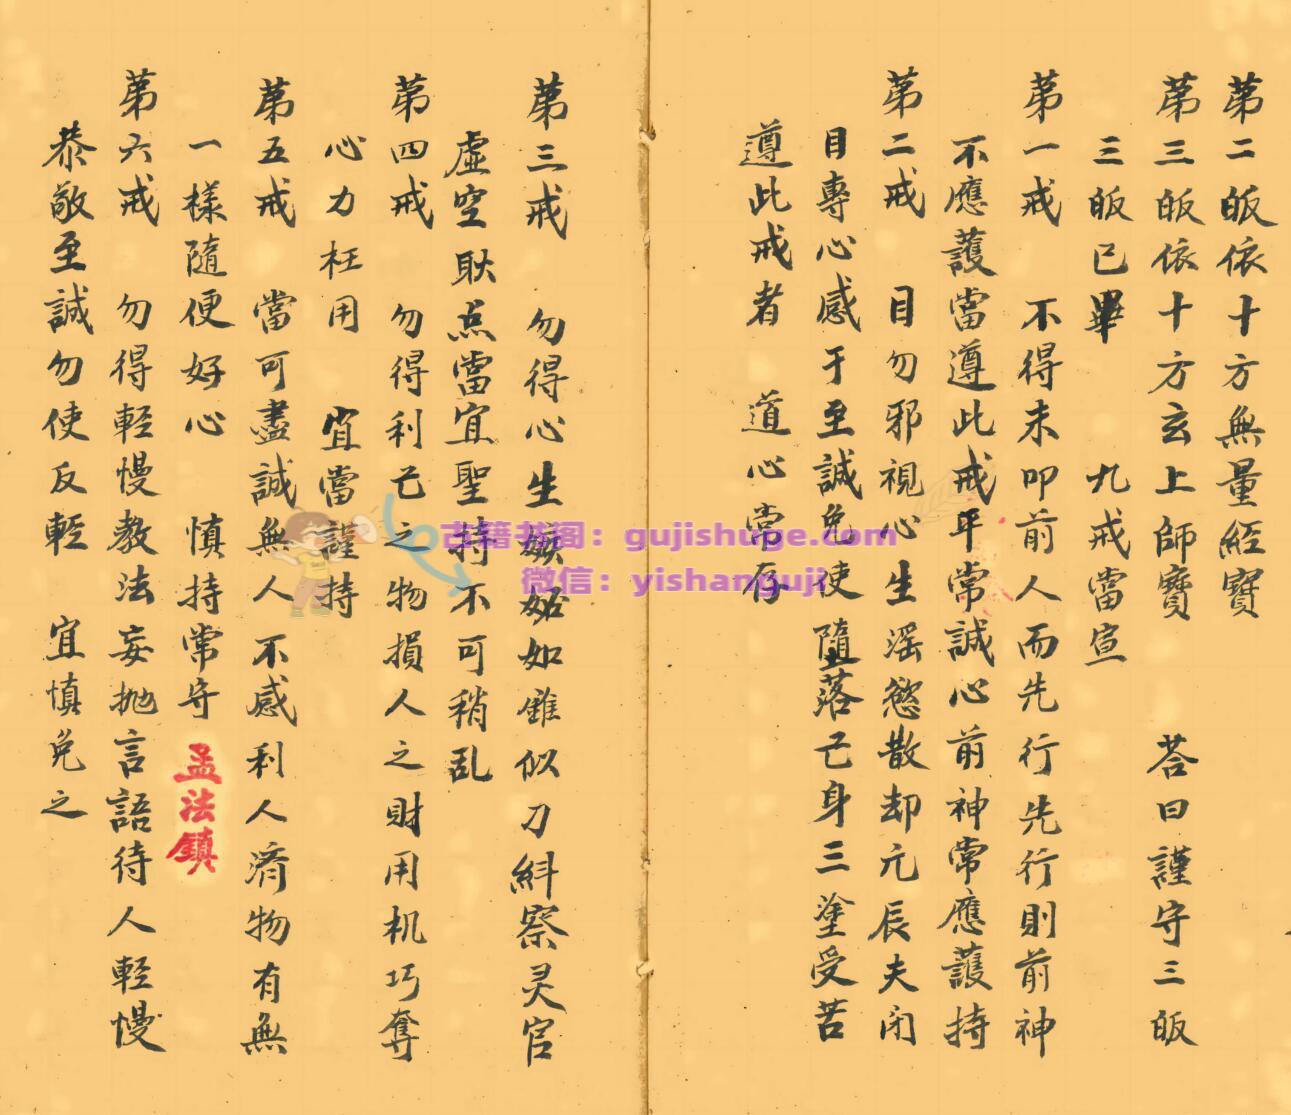 第二皈依十方無量經寶
第三皈依十方玄上師寶　答曰謹守三皈
三皈已畢　九戒當宣
第一戒　不得未叩前人而先行先行則前神
不應護當遵此戒平常誠心前神常應護持
第二戒　目勿邪視心生滛慾散却元辰夫閉
目專心感于至誠免使隨落己身三塗受苦
遵此戒者　道心常存
第三戒　勿得心生嫉妬如雖似刀糾察灵官
虛空耿点當宜聖持不可稍乱
第四戒　勿得利己之物損人之財用机巧奪
心力枉用　宜當謹持
第五戒　當可盡誠無人不感利人濟物有無
一樣隨便好心　慎持常守
孟法鎮
第六戒　勿得輕慢教法妄抛言語待人輕慢
恭敬至誠勿使反輕　宜慎免之
古籍书阁：gujishuge.com
微信：yishanguji